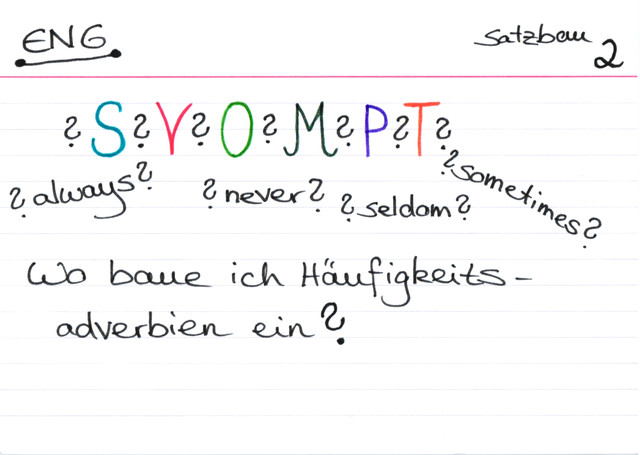 ENG.
Satzbau
2
? S ? V ? O ? M ? P ? T ?
? always ? ? never ? ? seldom ? ? sometimes ?
Wo baue ich Häufigkeits-
adverbien ein ?